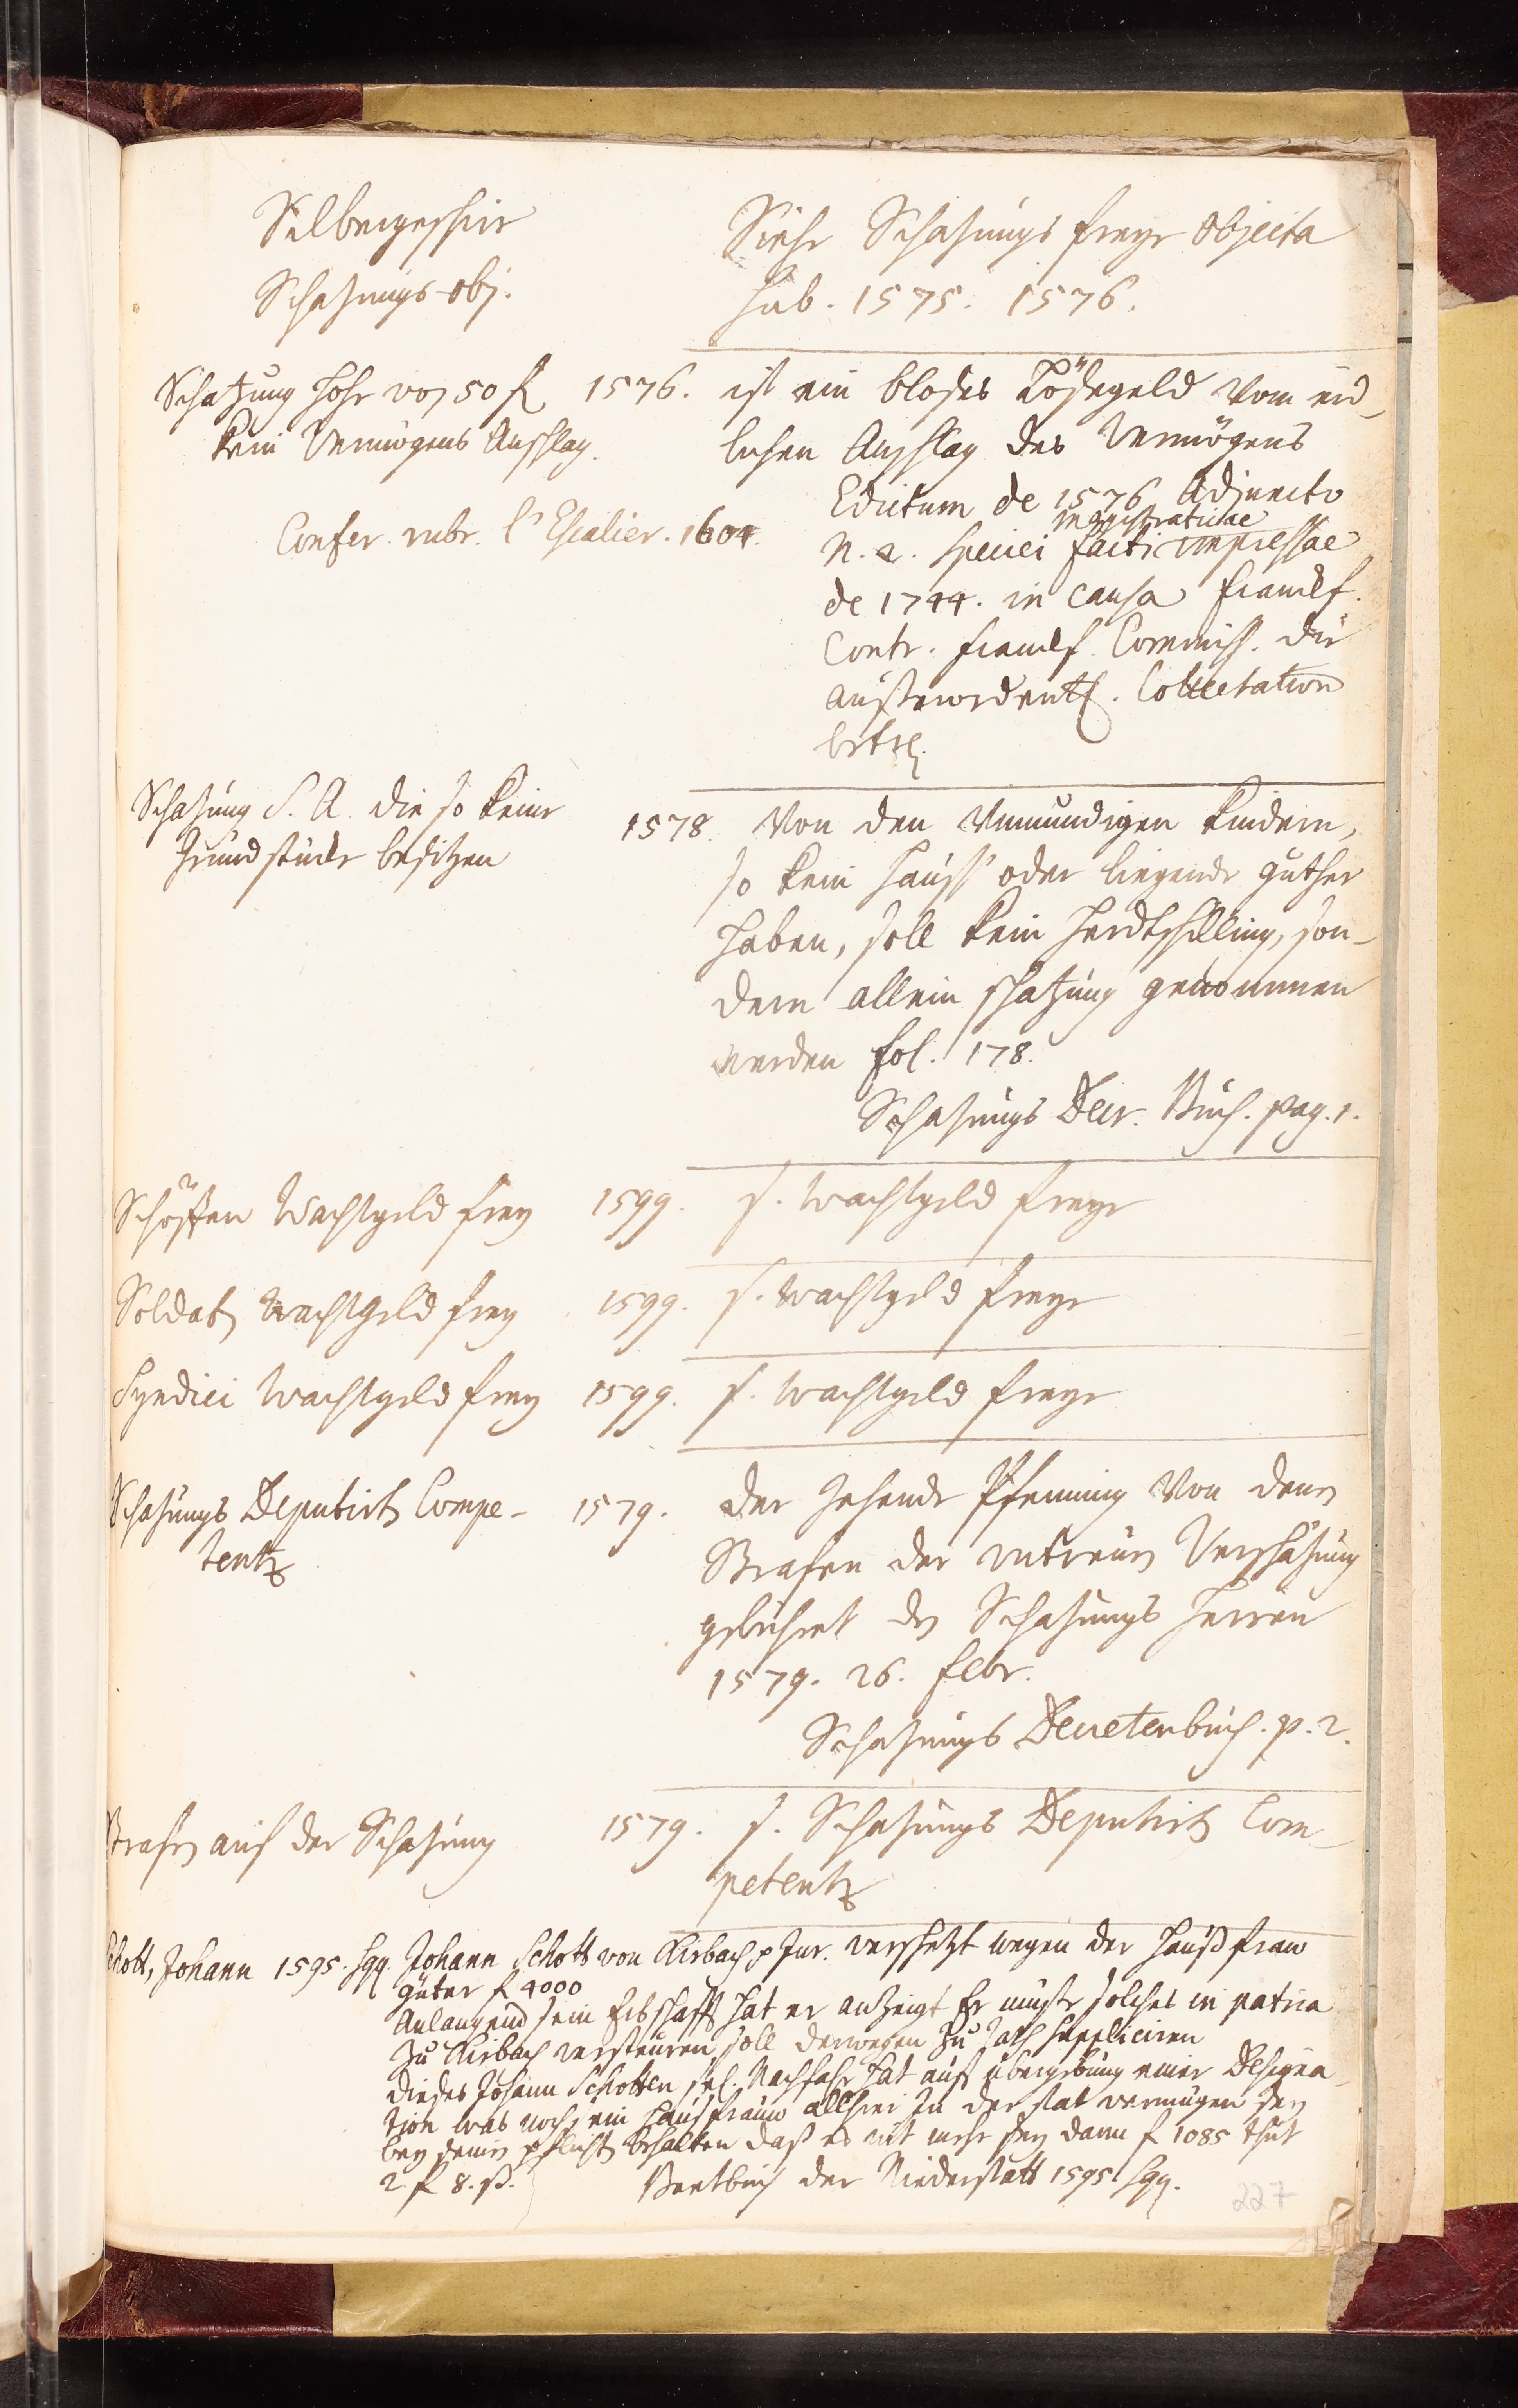 Silbergeschir
Schatzungs-obj.
Siehe Schatzungs freye Objecta
hab. 1575. 1576.
Schatzung hohe von 50 fl 1576. ist ein bloses Lösegeld vom eid-
kein Vermögens Anschlag. lichen Anschlag des Vermögens
Edictum de 1576 Adjuncto
Confer. rubr. l'Escalier. 1604. magistraticae
N. 2. Speciei facti impressae
de 1744. in causa Francf.
Contr. Francf. Commiss. die
ausserordentl. Collectation
betrl.
Schatzung S. A. die so keine
Grundstücke besitzen
1578. Von den Unmundigen Kindern,
so kein Hauss oder liegende guther
haben, soll kein Herdtschilling, son-
dern allein schatzung genommen
werden fol. 178.
Schatzungs Decr. Buch. pag. 1.
Schöffen Wachtgeld frey 1599. s. Wachtgeld freye
Soldaten Wachtgeld frey 1599. s. Wachtgeld freye
Syndici Wachtgeld frey 1599. s. Wachtgeld freye
Schatzungs Deputirten Compe-
tentz
1579. der Zehende Pfenning Von denen
Strafen der untreuen Verschatzung
gebühret den Schatzungs Herren
1579. 26. Febr.
Schatzungs Decretenbuch. p. 2.
Strafen auf der Schatzung 1579. s. Schatzungs Deputirten Com-
petentz
Schott, Johann 1595. sqq. Johann Schott von Airbach p Jur. verschetzt wegen der Haußfraw
güter f 4000
Anlangend sein Erbschafft hat er anzeigt Er müste solches in patria
zu Airbach versteuren, soll derwegen zu Rath suppliciren
dieses Johann Schotten sel. Nachfahr hat auf übergebung einer Designa-
tion was noch sein Hausfrauw allhier In der stat vermugen sey
bey deinen pflichten behalten daß es nit mehr sey dann f 1085 thut
2 f 8. ß. Beetbuch der Niederstatt 1595 sqq.
227